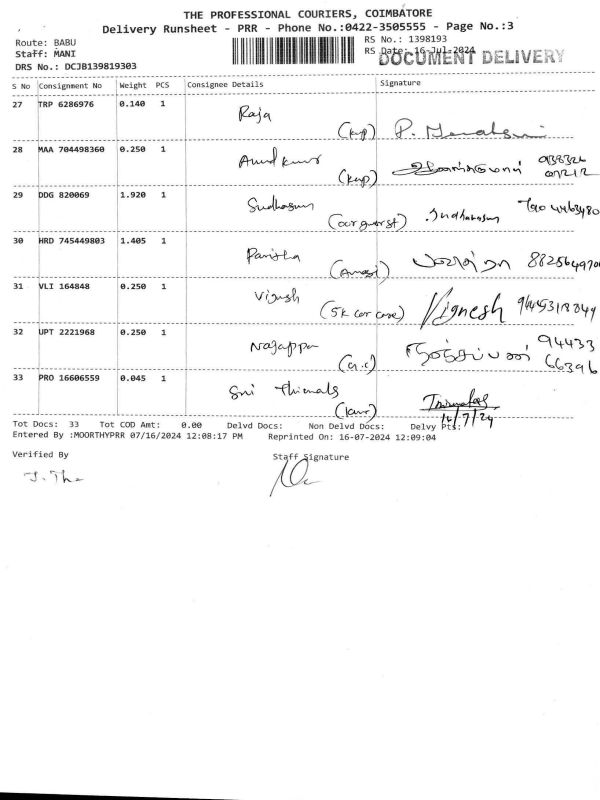 THE PROFESSIONAL COURIERS, COIMBATORE
Delivery Runsheet - PRR - Phone No.:0422-3505555 - Page No.:3
Route: BABU
RS No.: 1398193
Staff: MANI
RS Date: 16-Jul-2024
DOCUMENT DELIVERY
DRS No.: DCJB139819303
S No Consignment No Weight PCS Consignee Details Signature
27 TRP 6286976 0.140 1 Raja
(kmp) P.
28 MAA 704498360 0.250 1
(kmp)
29 DDG 820069 1.920 1 Sudhasun
30 HRD 745449803 1.405 1 Pavitha
31 VLI 164848 0.250 1 Vignesh
(SK car care) Vignesh
32 UPT 2221968 0.250 1 Nagappa
(G.C) 94433
66396
33 PRO 16606559 0.045 1 Sri Thirmals
Tot Docs: 33 Tot COD Amt: 0.00 Delvd Docs: Non Delvd Docs: Delvy Pts:
Entered By :MOORTHYPRR 07/16/2024 12:08:17 PM Reprinted On: 16-07-2024 12:09:04
Verified By Staff Signature